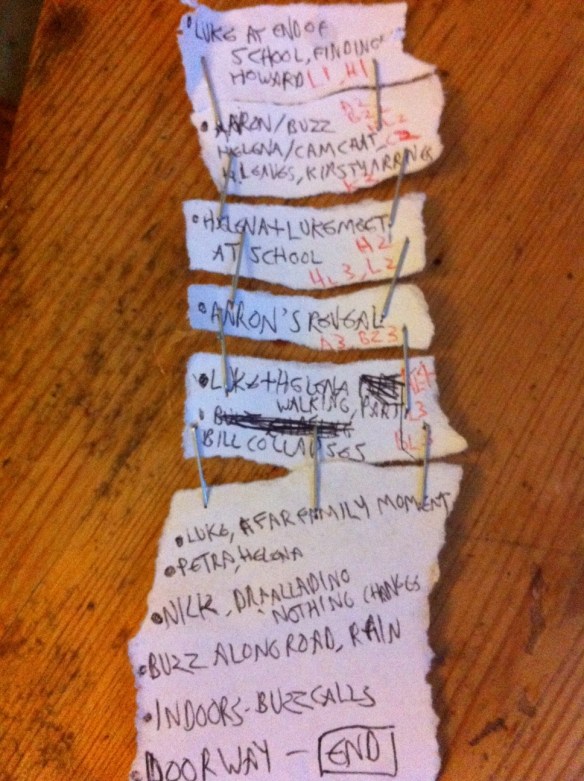 • LUKE AT END OF
SCHOOL, FINDING
HOWARD L1, H1
• AARON/BUZZ A2
HELENA/CAMCRAT, C2
H LEAVES, KIRSTY ARRIVES
• HELENA + LUKE MEET
AT SCHOOL H2
HL3, L2
• AARON'S REVEAL
A3, BZ3
• LUKE + HELENA
WALKING, PART
BILL COLLAPSES
• LUKE, AFAR FAMILY MOMENT
• PETRA, HELENA
• NICK, DR. ALLADINO
NOTHING CHANGES
• BUZZ ALONG ROAD, RAIN
• INDOORS - BUZZ CALLS
• DOORWAY - END